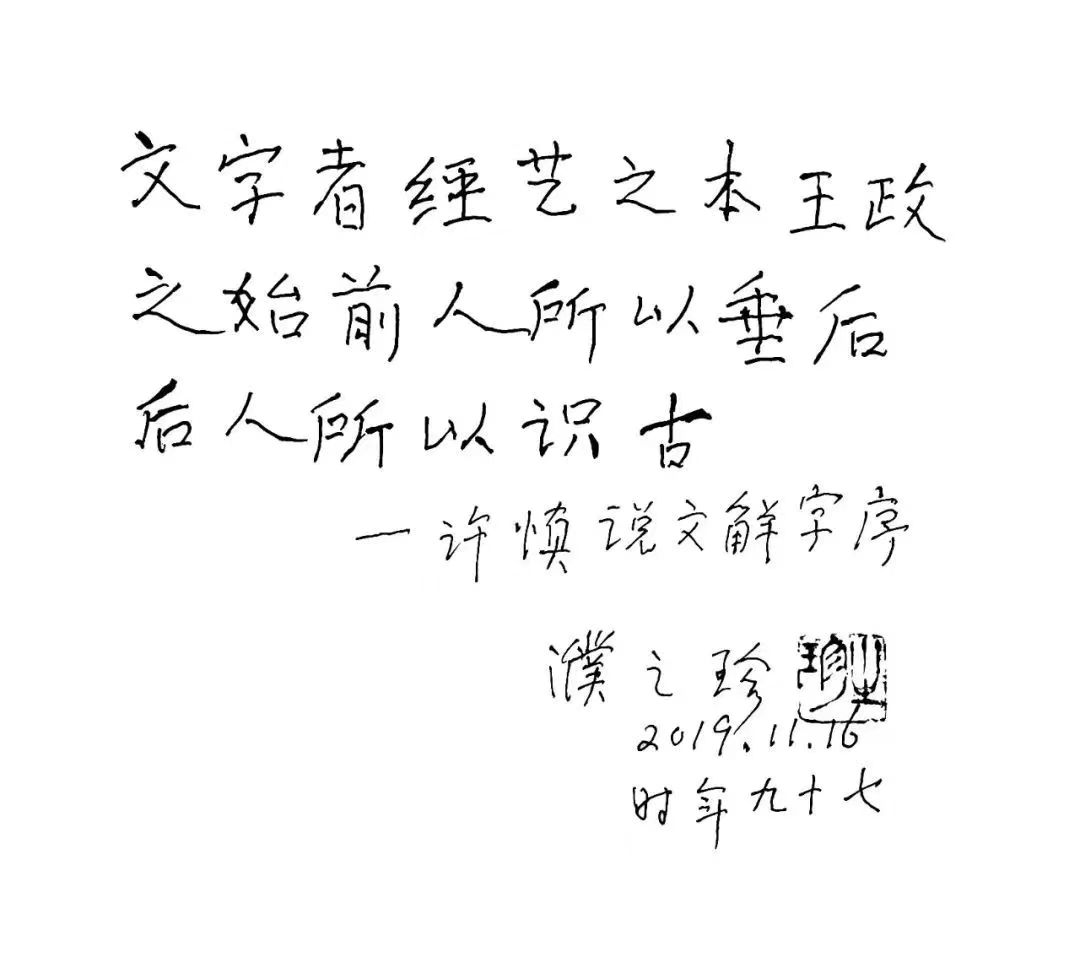 文字者經艺之本王政
之始前人所以垂后
后人所以识古
一许慎说文解字序
濮之珍
2019.11.16
时年九十七